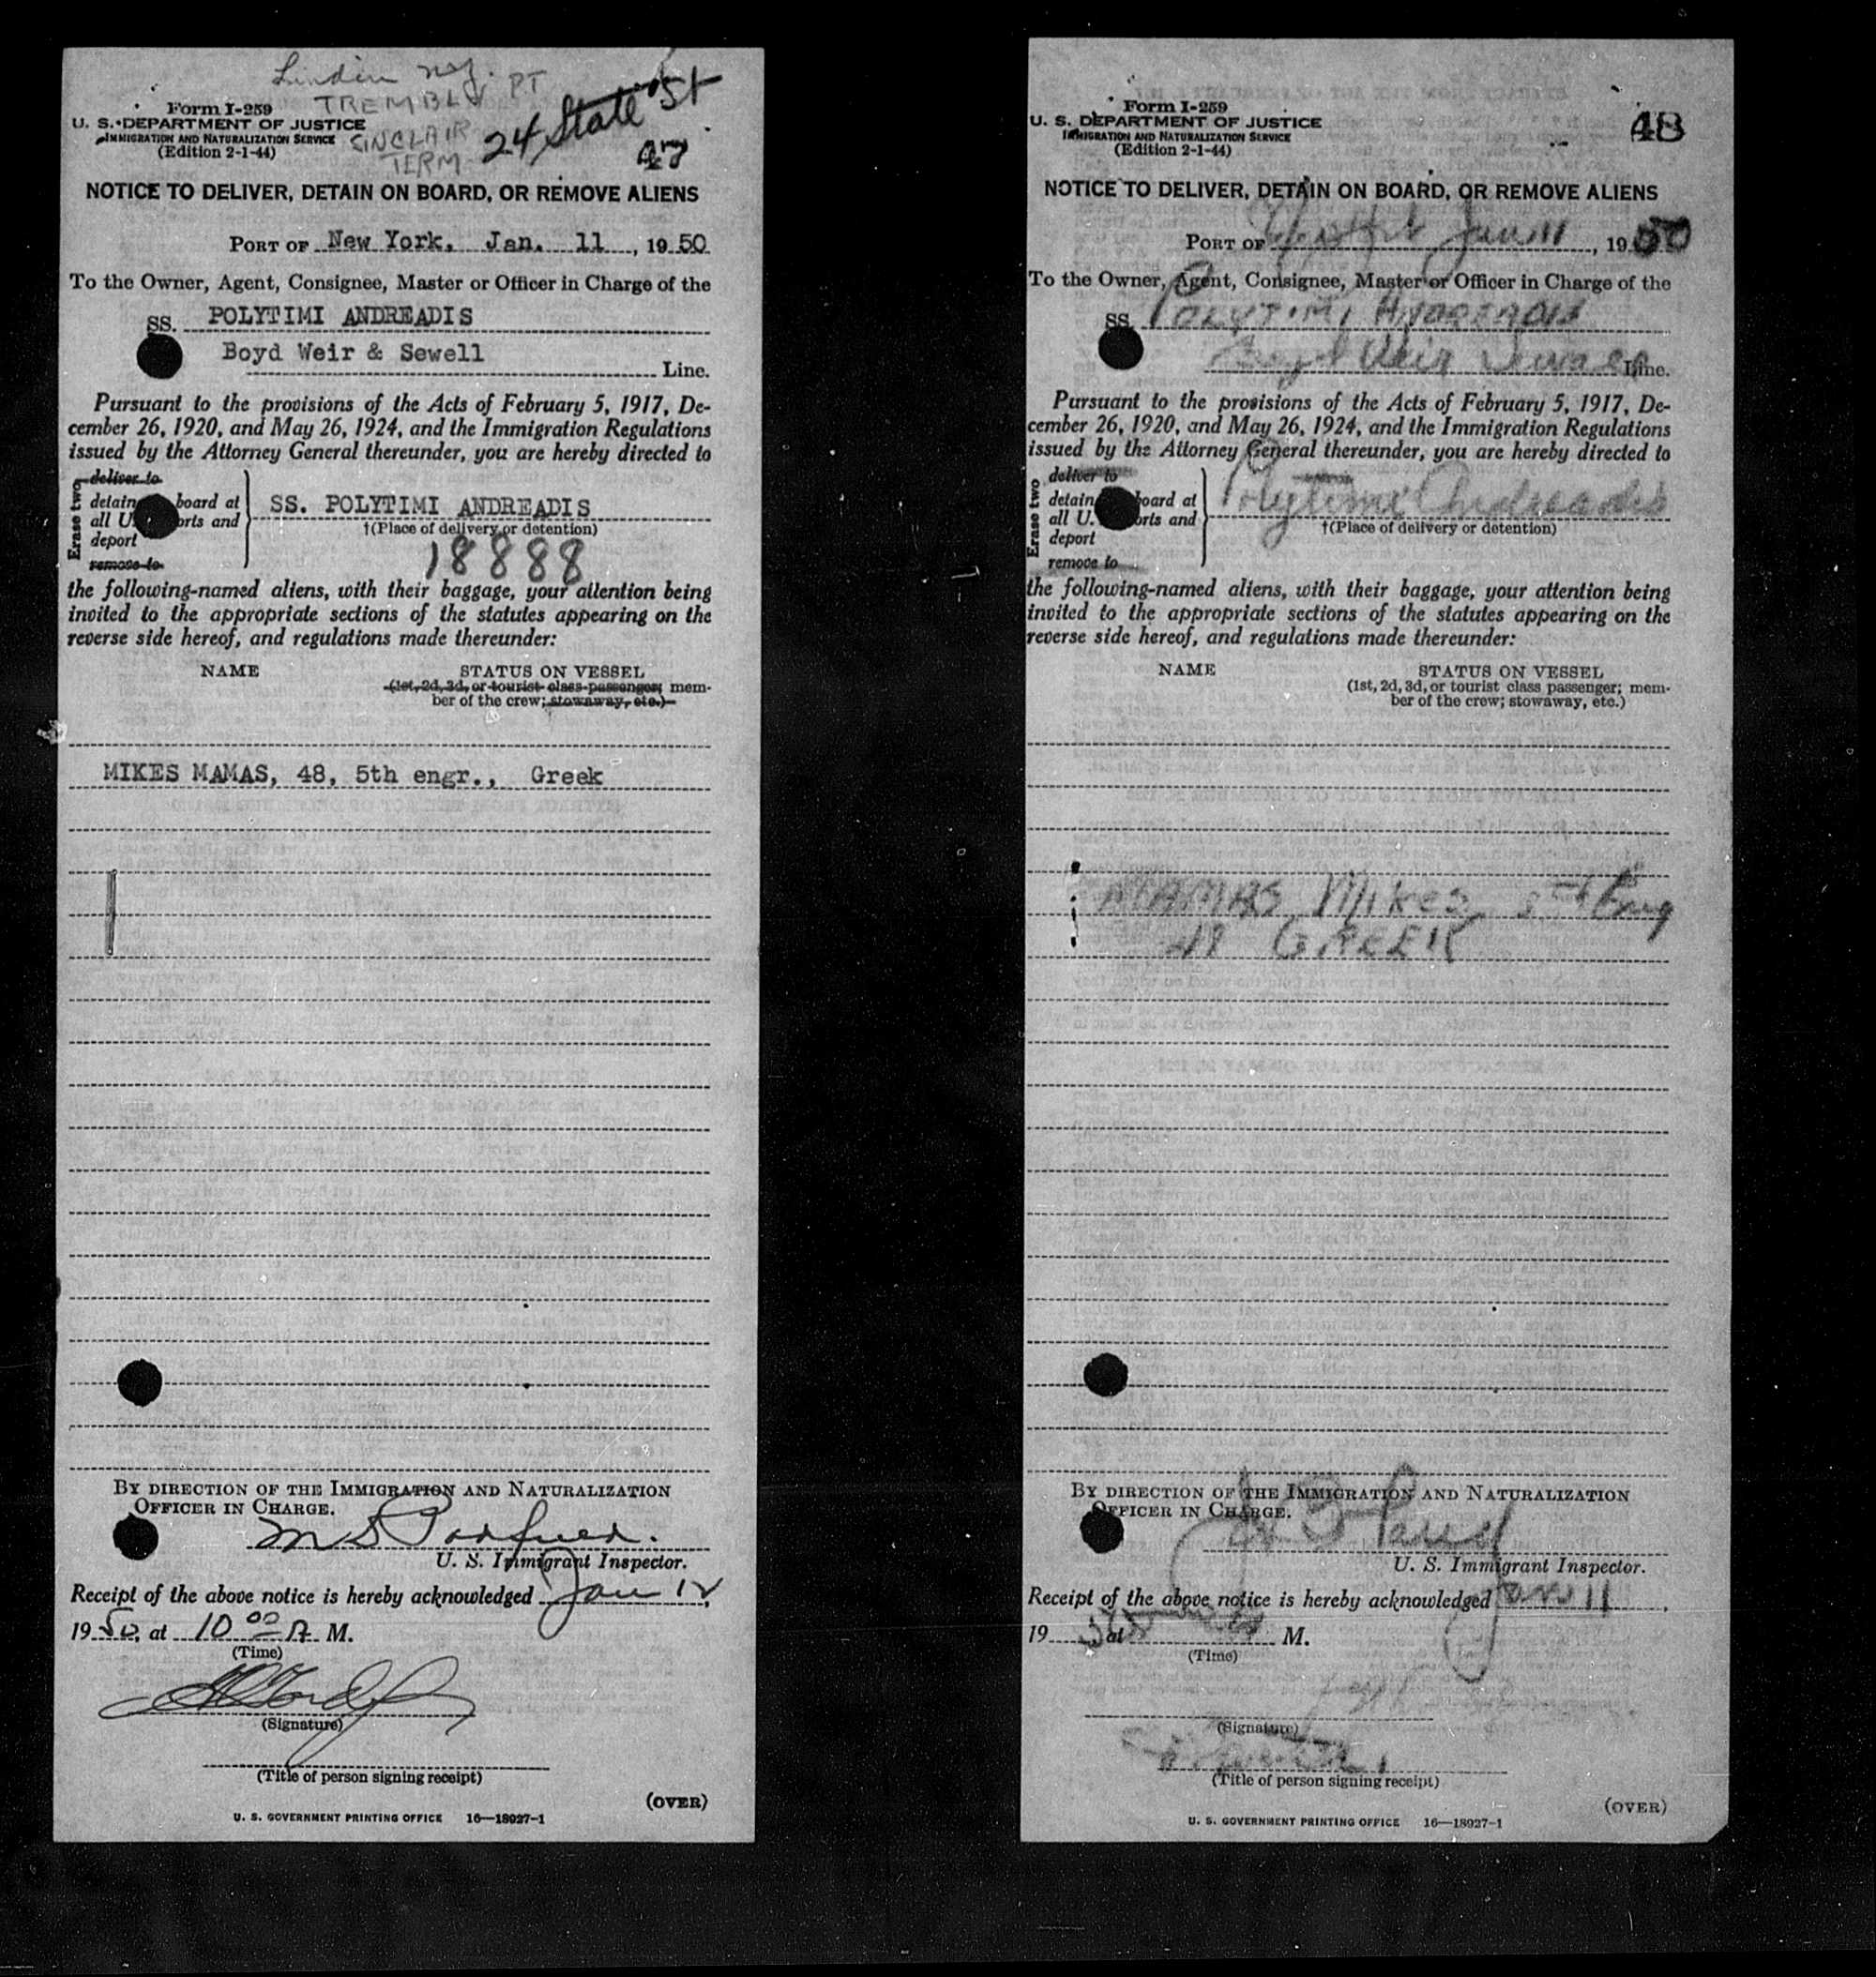 Linden N.J.
TREMBLY PT
SINCLAIR
TERM
24 State St
47
Form I-259
U. S. DEPARTMENT OF JUSTICE
IMMIGRATION AND NATURALIZATION SERVICE
(Edition 2-1-44)
NOTICE TO DELIVER, DETAIN ON BOARD, OR REMOVE ALIENS
PORT OF New York, Jan. 11, 1950
To the Owner, Agent, Consignee, Master or Officer in Charge of the
SS. POLYTIMI ANDREADIS
Boyd Weir & Sewell Line.
Pursuant to the provisions of the Acts of February 5, 1917, De-
cember 26, 1920, and May 26, 1924, and the Immigration Regulations
issued by the Attorney General thereunder, you are hereby directed to
Erase two
deliver to
detain board at
all U. orts and
deport
remove to
SS. POLYTIMI ANDREADIS
†(Place of delivery or detention)
18888
the following-named aliens, with their baggage, your attention being
invited to the appropriate sections of the statutes appearing on the
reverse side hereof, and regulations made thereunder:
NAME STATUS ON VESSEL
(1st, 2d, 3d, or tourist class passenger; mem-
ber of the crew; stowaway, etc.)
MIKES MAMAS, 48, 5th engr., Greek
BY DIRECTION OF THE IMMIGRATION AND NATURALIZATION
OFFICER IN CHARGE.
U. S. Immigrant Inspector.
Receipt of the above notice is hereby acknowledged Jan 12,
1950, at 10 00 A. M.
(Time)
(Signature)
(Title of person signing receipt)
(OVER)
U. S. GOVERNMENT PRINTING OFFICE 16—18927-1
48
Form I-259
U. S. DEPARTMENT OF JUSTICE
IMMIGRATION AND NATURALIZATION SERVICE
(Edition 2-1-44)
NOTICE TO DELIVER, DETAIN ON BOARD, OR REMOVE ALIENS
PORT OF Jan 11, 1950
To the Owner, Agent, Consignee, Master or Officer in Charge of the
SS. POLYTIMI ANDREADIS
Boyd Weir Sewell Line.
Pursuant to the provisions of the Acts of February 5, 1917, De-
cember 26, 1920, and May 26, 1924, and the Immigration Regulations
issued by the Attorney General thereunder, you are hereby directed to
Erase two
deliver to
detain board at
all U. orts and
deport
remove to
Polytimi Andreadis
†(Place of delivery or detention)
the following-named aliens, with their baggage, your attention being
invited to the appropriate sections of the statutes appearing on the
reverse side hereof, and regulations made thereunder:
NAME STATUS ON VESSEL
(1st, 2d, 3d, or tourist class passenger; mem-
ber of the crew; stowaway, etc.)
MAMAS Mikes, 5th Eng
48 GREEK
BY DIRECTION OF THE IMMIGRATION AND NATURALIZATION
OFFICER IN CHARGE.
U. S. Immigrant Inspector.
Receipt of the above notice is hereby acknowledged Jan 11,
19 at M.
(Time)
(Signature)
(Title of person signing receipt)
(OVER)
U. S. GOVERNMENT PRINTING OFFICE 16—18927-1